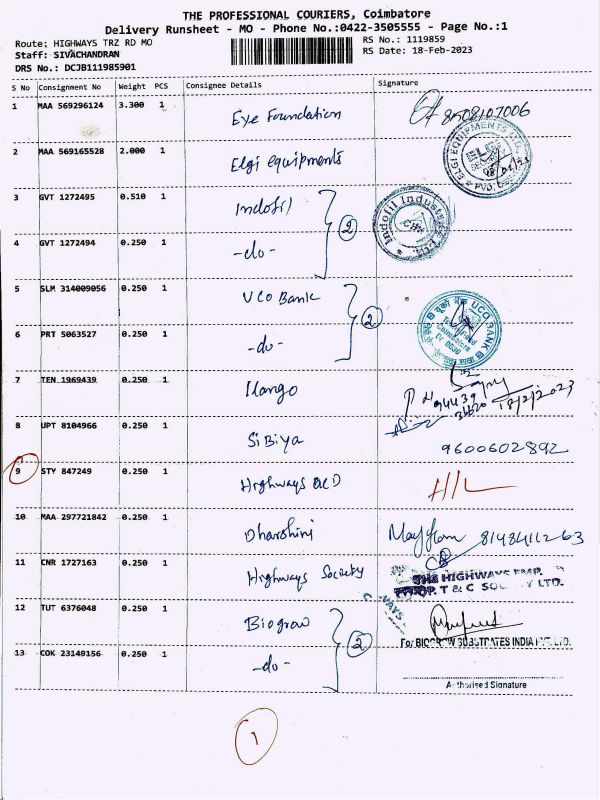 THE PROFESSIONAL COURIERS, Coimbatore
Delivery Runsheet - MO - Phone No.:0422-3505555 - Page No.:1
Route: HIGHWAYS TRZ RD MO
RS No.: 1119859
Staff: SIVACHANDRAN
RS Date: 18-Feb-2023
DRS No.: DCJB111985901
S No Consignment No Weight PCS Consignee Details Signature
1 MAA 569296124 3.300 1 Eye Foundation 8508107006
2 MAA 569165528 2.000 1 Elgi equipments
ELGI EQUIPMENTS
3 GVT 1272495 0.510 1 Indofil
2
Indofil Industries
4 GVT 1272494 0.250 1 -do-
5 SLM 314009056 0.250 1 UCO Bank
2
UCO BANK
Coimbatore
6 PRT 5063527 0.250 1 -do-
7 TEN 1969439 0.250 1 Ilango
94439
18/2/2023
8 UPT 8104966 0.250 1 SiBiya 9600602892
9 STY 847249 0.250 1 Highways QCD H/L
10 MAA 297721842 0.250 1 Dharshini
11 CNR 1727163 0.250 1 Highways Society
THE HIGHWAYS EMP.
T & C SOCIETY LTD.
12 TUT 6376048 0.250 1 Biogrow
2
For BIOGROW SUBSTRATES INDIA PVT. LTD.
13 COK 23149156 0.250 1 -do-
Authorised Signature
1